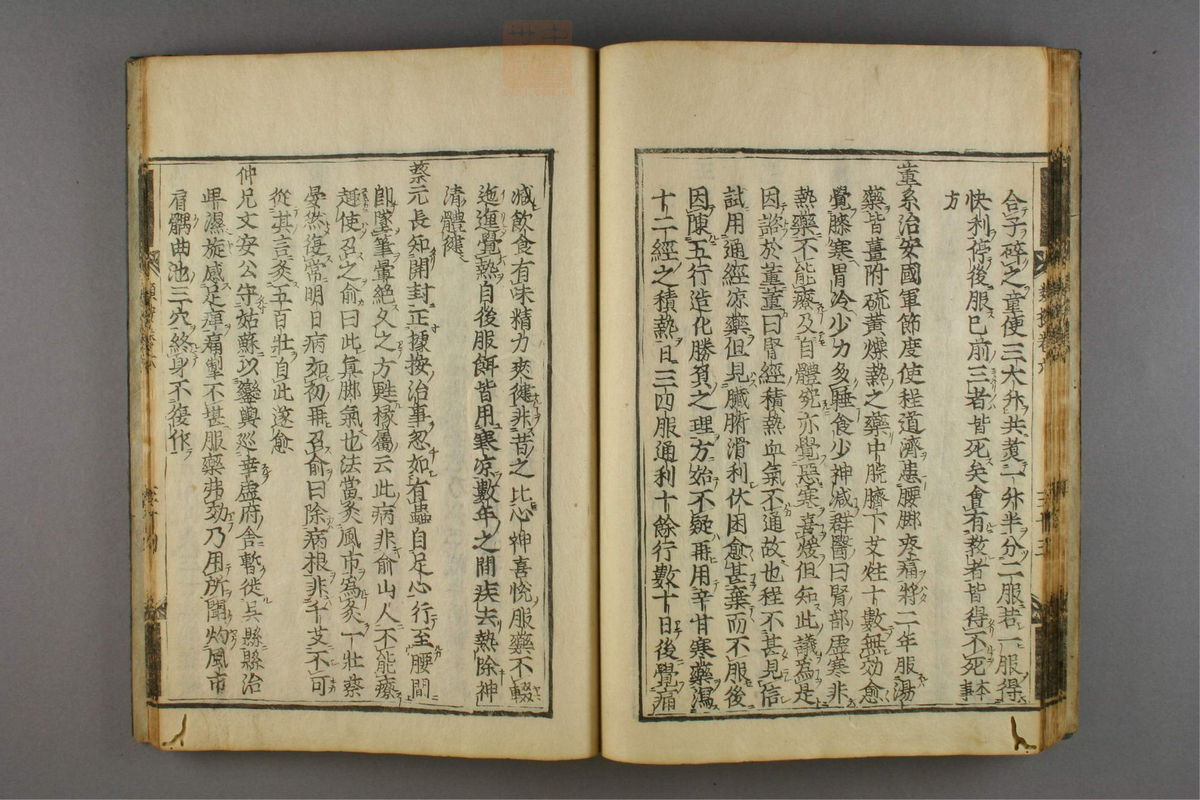 合子碎之童便三大升共煑一升半分二服若一服得
快利停後服已前三者皆死矣會有教者皆得不死本事
方
董系治安國軍節度使程道濟患腰脚疼痛將二年服湯
藥皆薑附硫黃燥熱之藥中脘臍下艾炷十數無効愈
覺膝寒胃冷少力多睡食少神减群醫曰腎部虛寒非
熱藥不能療及自體究亦覺惡寒喜煖但知此議為是
因諮於董董曰腎經積熱血氣不通故也程不甚見信
試用通經涼藥但見臟腑滑利伏困愈甚棄而不服後
因陳五行造化勝負之理方始不疑再用辛甘寒藥瀉
十二經之積熱日三四服通利十餘行數十日後覺痛
减飲食有味精力爽徤非昔之比心神喜悅服藥不輟
迤邐覺熱自後服餌皆用寒凉數年之間疾去熱除神
清體徤
蔡元長知開封正據按治事忽如有蟲自足心行至腰間
即墜筆暈絕久之方甦椽屬云此病非俞山人不能療
趣使召之俞曰此真脚氣也法當灸風市為灸一壯蔡
晏然復常明日病如初再召俞曰除病根非千艾不可
從其言灸五百壯自此遂愈
仲兄文安公守姑蘇以鑾輿巡幸虛府舍暫徙吳縣縣治
卑濕旋感足痺痛掣不甚服藥弗効乃用所聞灼風市
肩髃曲池三穴終身不復作